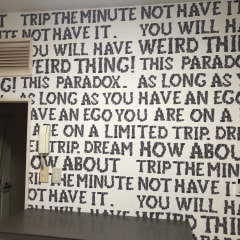 TRIP THE MINUTE NOT HAVE IT.
NOT HAVE IT. YOU WILL HAVE
YOU WILL HAVE WEIRD THING!
WEIRD THING! THIS PARADOX.
THIS PARADOX. AS LONG AS Y
AS LONG AS YOU HAVE AN EGO
HAVE AN EGO YOU ARE ON A
ARE ON A LIMITED TRIP. DREAM
ED TRIP. DREAM HOW ABOUT
HOW ABOUT TRIP THE MINUTE
THE MINUTE NOT HAVE IT.
NOT HAVE IT. YOU WILL
YOU WILL HAVE